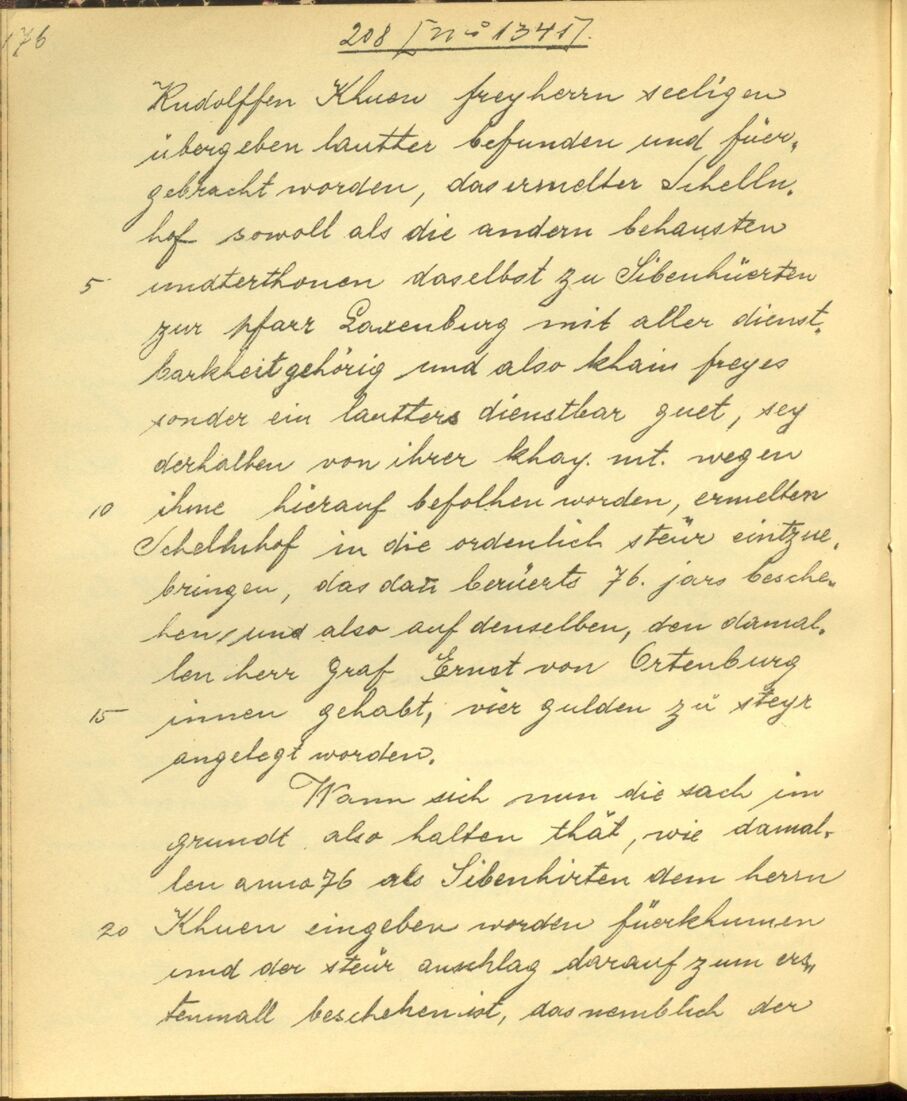 176
208 [No 1341].
Rudolffen Khuen freyherrn seeligen
übergeben lautter befunden und füer„
gebracht worden, das ermelter Schelln„
hof sowoll als die andern behausten
5 undterthonen daselbst zu Sibenhüerten
zur pfarr Laxenburg mit aller dienst„
barkheit gehörig und also khain freyes
sonder ein lautters dienstbar guet, sey
derhalben von ihrer khay. mt. wegen
10 ihme hierauf befolhen worden, ermelten
Schellnhof in die ordenlich steür eintzue„
bringen, das dan̄ berüerts 76. jars besche„
hen, und also auf denselben, den damal„
len herr Graf Ernst von Ortenburg
15 innen gehabt, vier gulden zu steyr
angelegt worden.
Wann sich nun die sach im
grundt also halten thät, wie damal„
len anno 76 als Sibenhirten dem herrn
20 Khuen eingeben worden füerkhumen
und der steür anschlag darauf zum ers„
tenmall beschehen ist, das nemblich der